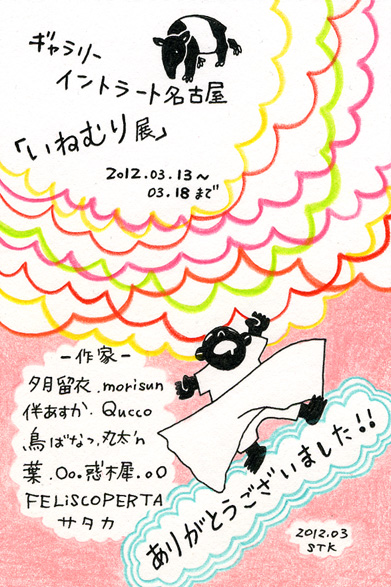 ギャラリー
イントラート名古屋
「いねむり展」
2012.03.13～
03.18まで
－作家－
夕月留衣.morisun
伴あすか.Qucco
鳥ばなっ.丸太'n
葉.Oo.惑木犀.oO
FELiSCOPERTA
サタカ
ありがとうございました!!
2012.03
STK